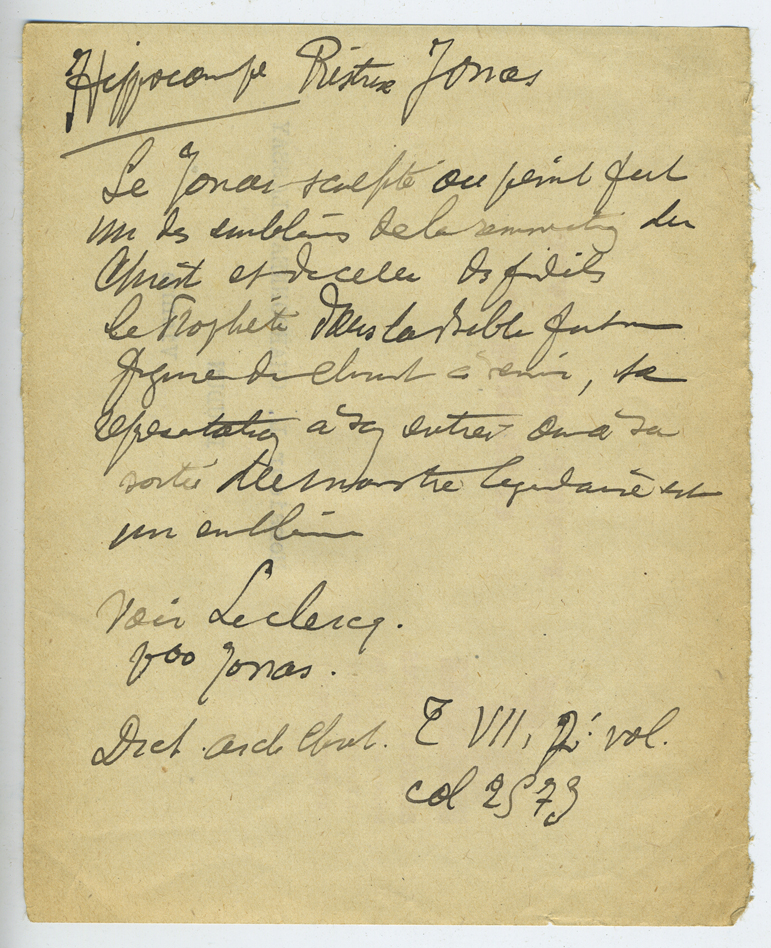 Hippocampe Pistrix Jonas
Le Jonas sculpté ou peint fut
un des emblèmes de la résurrection du
Christ et de celle des fidèles
Le Prophète dans la Bible fut une
figure du Christ à venir, sa
représentation à son entrée ou à sa
sortie du monstre légendaire est
un emblème
Voir Leclercq.
Vbo Jonas.
Dict. arch. Chret. T VII, 2e vol.
col 2573